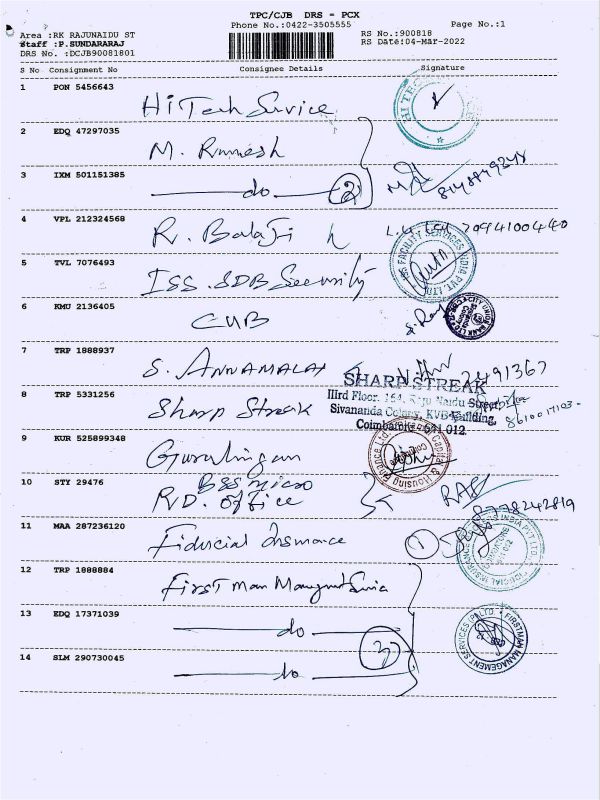 TPC/CJB DRS = PCX
Phone No.:0422-3505555
Page No.:1
Area :RK RAJUNAIDU ST
RS No.:900818
Staff :P.SUNDARARAJ
RS Date:04-Mar-2022
DRS No. :DCJB90081801
S No Consignment No Consignee Details Signature
1 PON 5456643
Hi Tech Service
HI TE
2 EDQ 47297035
M. Ramesh
3 IXM 501151385
do 2
4 VPL 212324568
R. Balaji
FACILITY SERVICES INDIA PVT. LTD.
5 TVL 7076493
ISS SDB Security
6 KMU 2136405
CUB
CITY UNION BANK LTD
7 TRP 1888937
S. ANNAMALAI
SHARP STREAK
IIIrd Floor, 164, Raju Naidu Street
8 TRP 5331256
Sharp Streak
Sivananda Colony, KVB Building,
Coimbatore - 641 012.
9 KUR 525899348
Gurulingam
Capital & Housing Finance Ltd
10 STY 29476
BSS micro
R/D. office
11 MAA 287236120
Fiducial Insurance
1
12 TRP 1888884
First Man Mangmt Servia
13 EDQ 17371039
do
3
FIRSTMAN MANAGEMENT SERVICES (P) LTD.
14 SLM 290730045
do